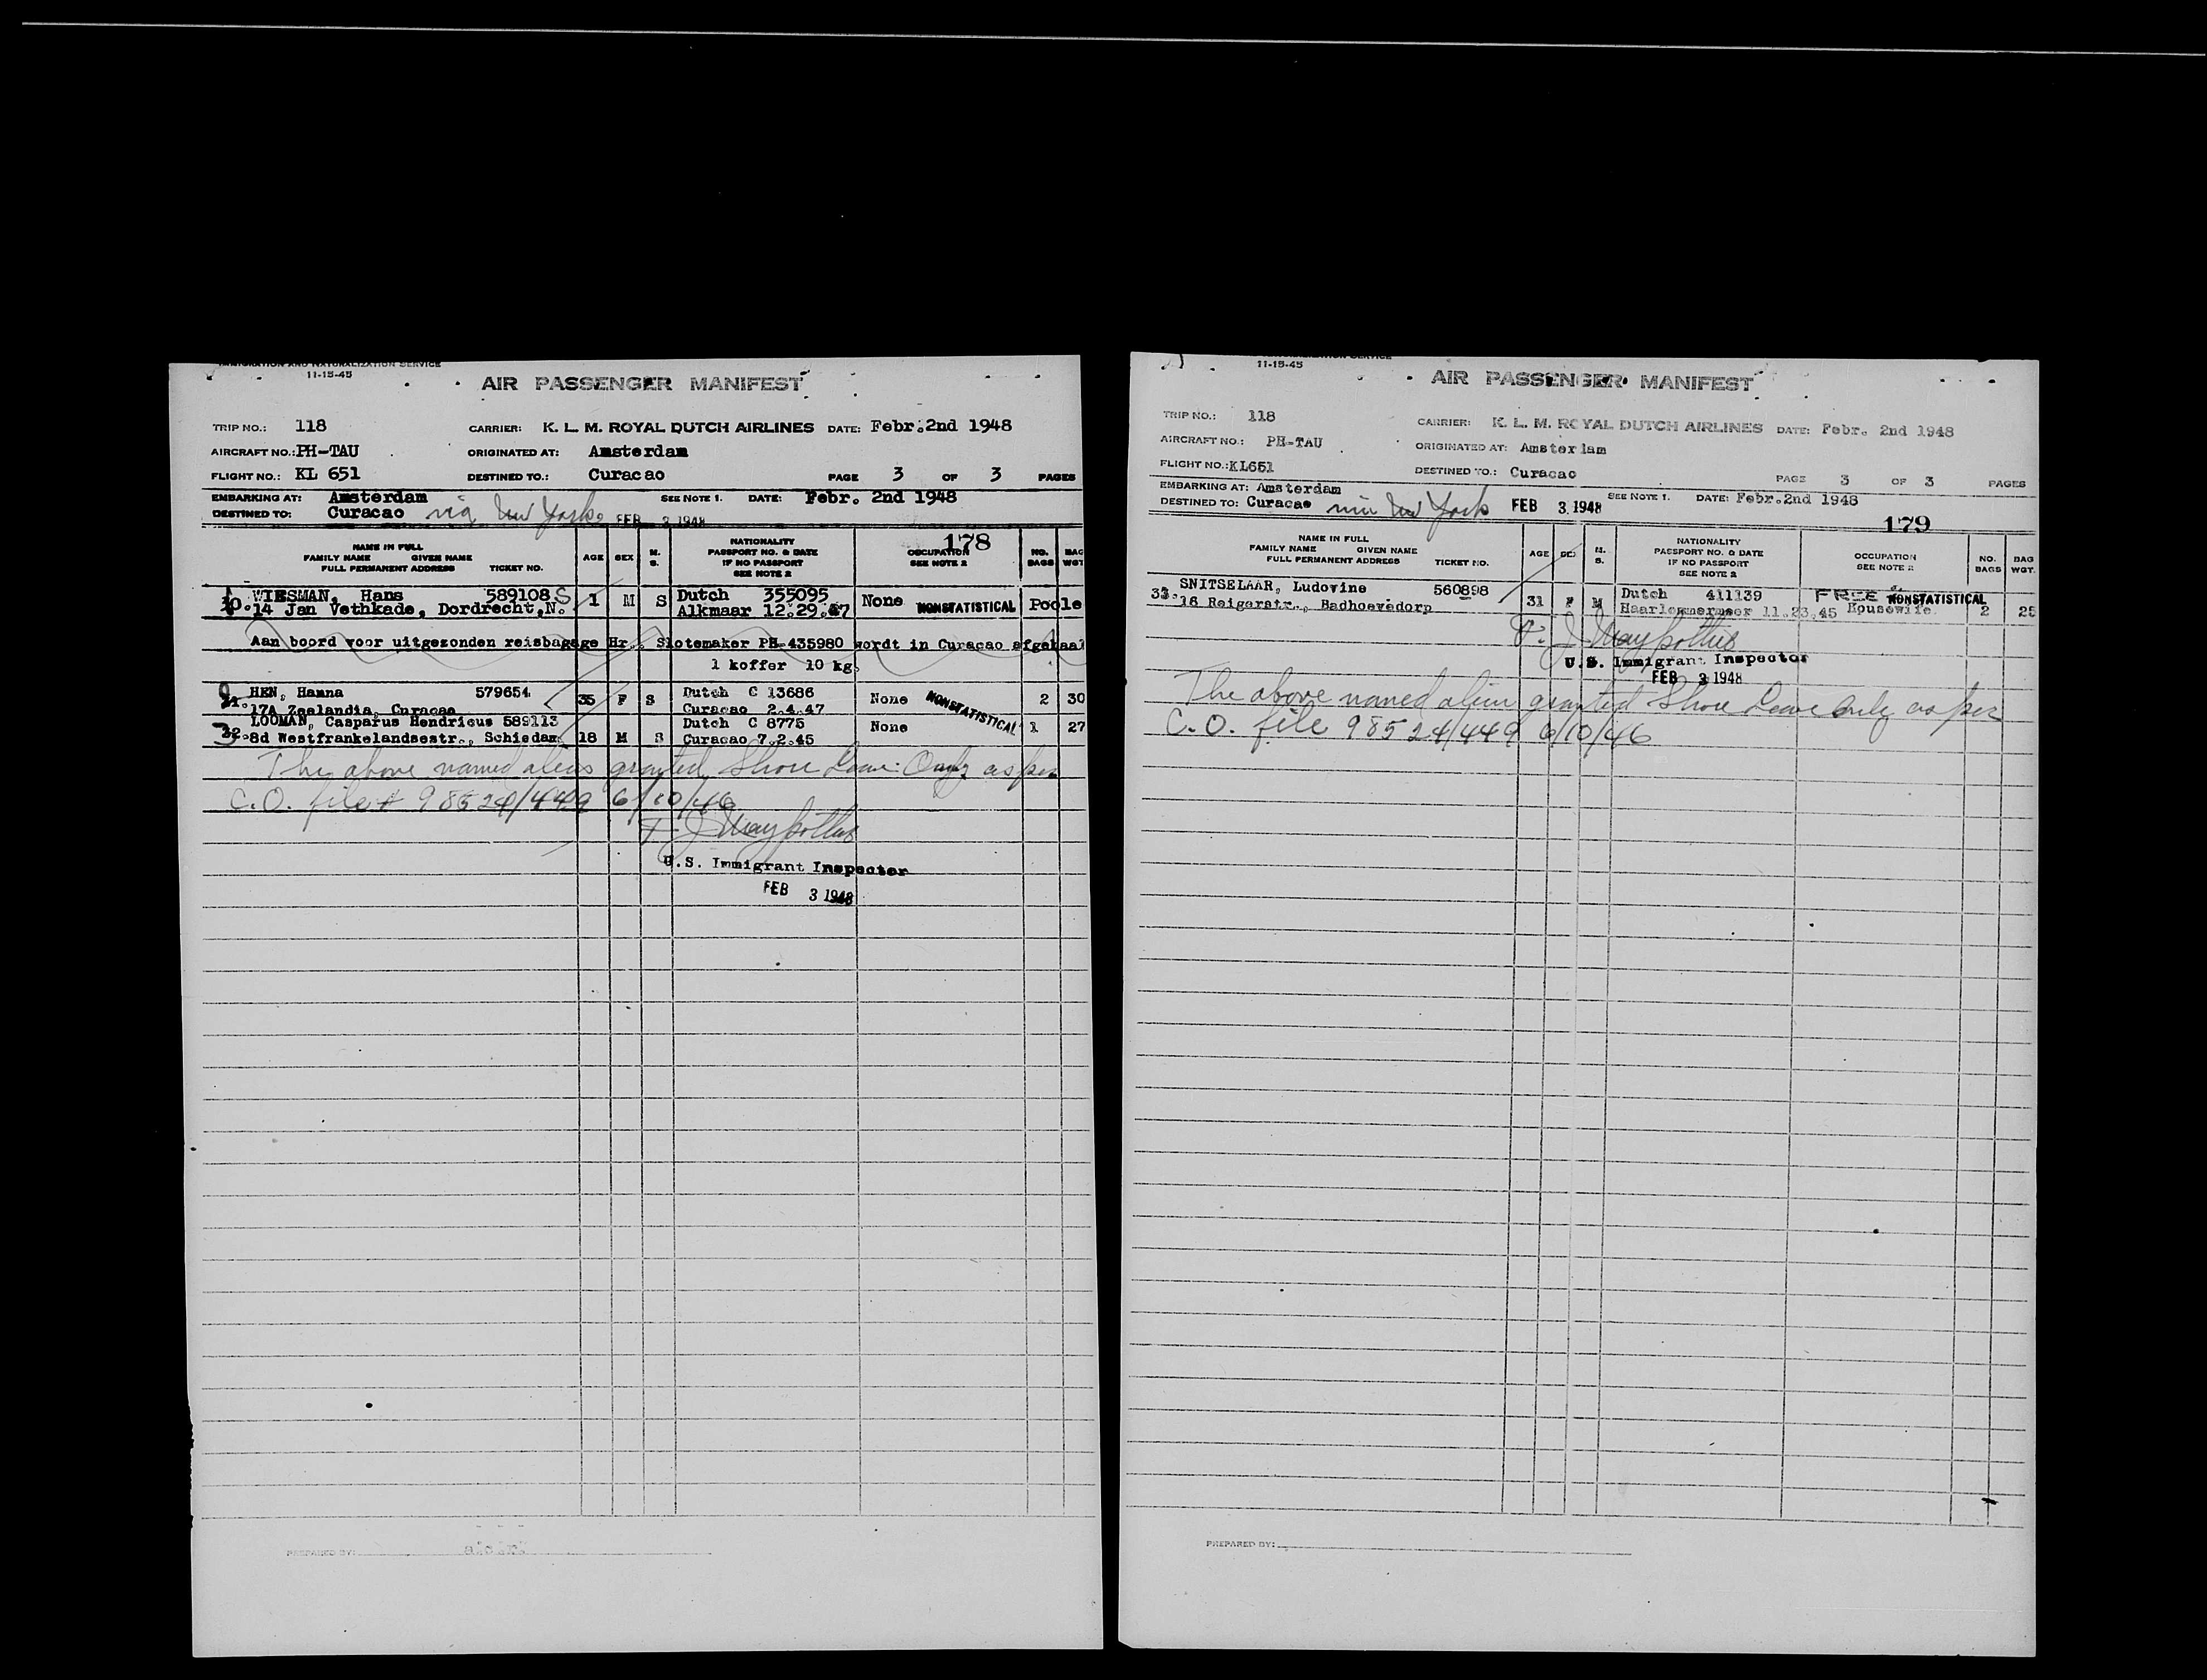 IMMIGRATION AND NATURALIZATION SERVICE
11-15-45
AIR PASSENGER MANIFEST
TRIP NO.: 118 CARRIER: K. L. M. ROYAL DUTCH AIRLINES DATE: Febr. 2nd 1948
AIRCRAFT NO.: PH-TAU ORIGINATED AT: Amsterdam
FLIGHT NO.: KL 651 DESTINED TO.: Curacao PAGE 3 OF 3 PAGES
EMBARKING AT: Amsterdam SEE NOTE 1. DATE: Febr. 2nd 1948
DESTINED TO: Curacao via New York FEB 3 1948
178
NAME IN FULL
FAMILY NAME GIVEN NAME
FULL PERMANENT ADDRESS TICKET NO.
AGE
SEX
M.
S.
NATIONALITY
PASSPORT NO. & DATE
IF NO PASSPORT
SEE NOTE 2
OCCUPATION
SEE NOTE 2
NO.
BAGS
BAG
WGT.
WIESMAN, Hans 589108 S 1 M S Dutch 355095 None NONSTATISTICAL Poole
14 Jan Vethkade, Dordrecht,N. Alkmaar 12.29.47
Aan boord voor uitgezonden reisbagage Hr. Slotemaker PH-435980 wordt in Curacao afgehaal
1 koffer 10 kg.
HEN, Hanna 579654 35 F S Dutch C 13686 None NONSTATISTICAL 2 30
17A Zeelandia, Curacao Curacao 2.4.47
LOOMAN, Casparus Hendricus 589113 18 M S Dutch C 8775 None 1 27
8d Westfrankelandsestr., Schiedam Curacao 7.2.45
The above named aliens granted Shore Leave Only as per
C.O. file # 98524/449 6/10/46
U.S. Immigrant Inspector
FEB 3 1948
PREPARED BY:
11-15-45
AIR PASSENGER MANIFEST
TRIP NO.: 118 CARRIER: K. L. M. ROYAL DUTCH AIRLINES DATE: Febr. 2nd 1948
AIRCRAFT NO.: PH-TAU ORIGINATED AT: Amsterdam
FLIGHT NO.: KL651 DESTINED TO.: Curacao PAGE 3 OF 3 PAGES
EMBARKING AT: Amsterdam SEE NOTE 1. DATE: Febr.2nd 1948
DESTINED TO: Curacao via New York FEB 3 1948
179
NAME IN FULL
FAMILY NAME GIVEN NAME
FULL PERMANENT ADDRESS TICKET NO.
AGE
SEX
M.
S.
NATIONALITY
PASSPORT NO. & DATE
IF NO PASSPORT
SEE NOTE 2
OCCUPATION
SEE NOTE 2
NO.
BAGS
BAG
WGT.
33. SNITSELAAR, Ludovine 560898 31 F M Dutch 411139 FREE NONSTATISTICAL
16 Reigerstr., Badhoevedorp Haarlemmermeer 11.23.45 Housewife 2 25
U.S. Immigrant Inspector
FEB 3 1948
The above named alien granted Shore Leave Only as per
C.O. file 98524/449 6/10/46
PREPARED BY: